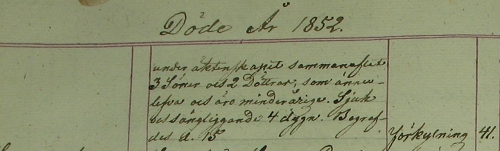 Döde År 1852.
under äktenskapet sammanaflat
3 Söner och 2 Döttrar, som ännu
lefva och äro minderårige. Sjuk
och sängliggande 4 dygn. Begraf-
des d. 15
Förkylning 41.